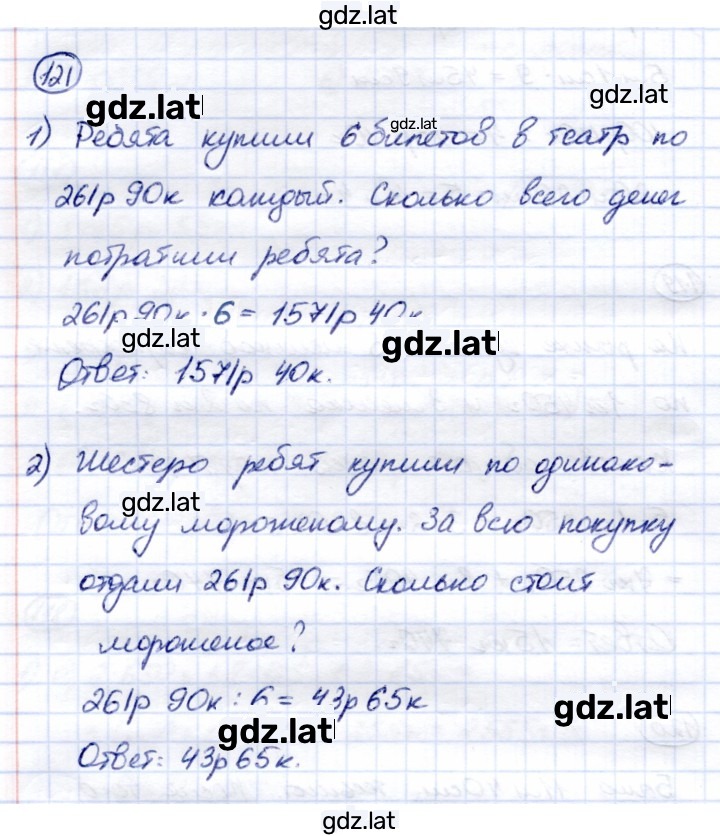 gdz.lat
121
gdz.lat
gdz.lat
gdz.lat
1) Ребята купили 6 билетов в театр по
261р 90к каждый. Сколько всего денег
потратили ребята?
261р 90к · 6 = 1571р 40к
gdz.lat
gdz.lat
Ответ: 1571р 40к.
2) Шестеро ребят купили по одинако-
gdz.lat
вому мороженому. За всю покупку
отдали 261р 90к. Сколько стоит
мороженое?
261р 90к : 6 = 43р 65к
gdz.lat
gdz.lat
Ответ: 43р 65к.
gdz.lat